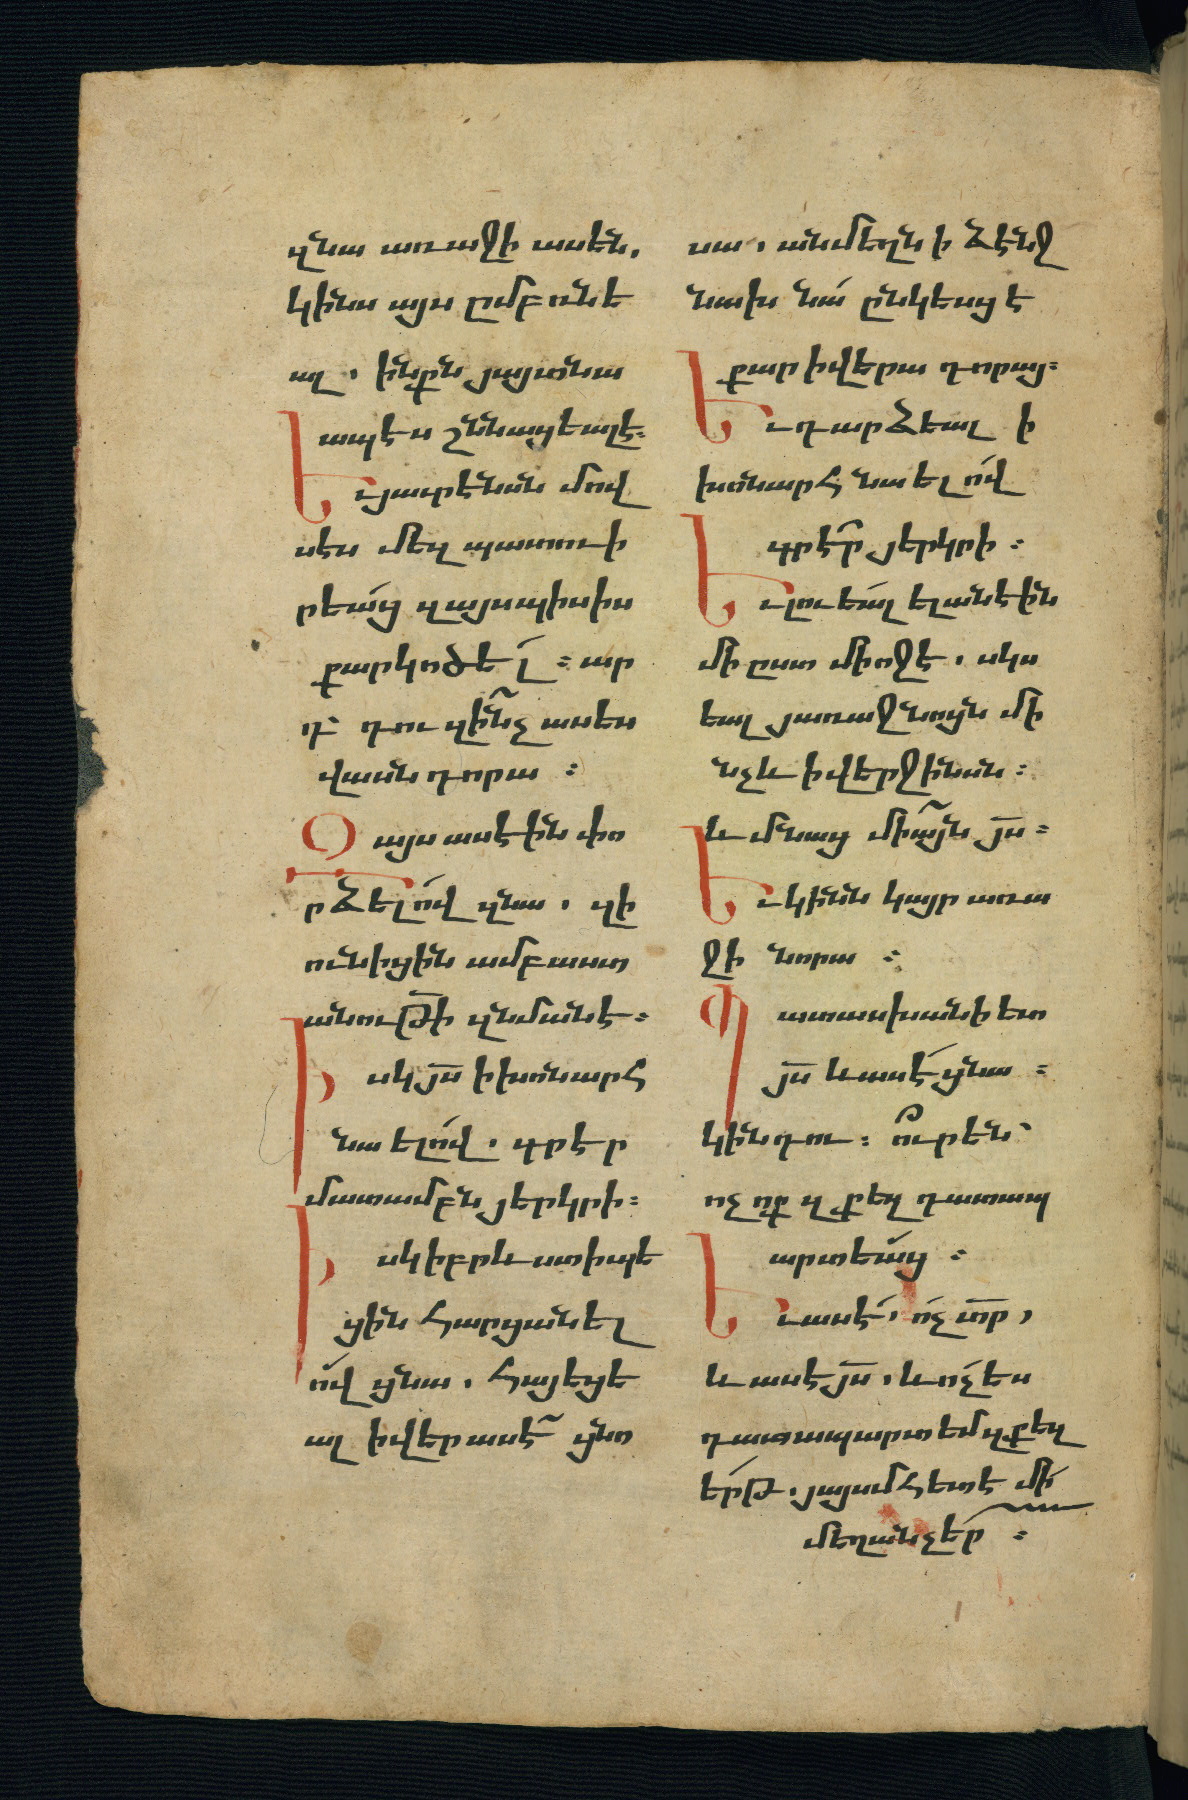 զնա առաջի ասեն,
կինս այս ըմբռնե
ալ · ինքն յայտնա
ապէս շննացեալէ։
Եւ յաւրէնան մով
սէս մեզ պատուի
րեաց զայսպիսիս
քարկոծել ։ արդ
դ՝ դու զի՞նչ ասես
վասն դորա ։
Զայս ասէին փո
րձելով զնա · զի
ունիցին ամբաստ
անութի զնմանէ։
Իսկ յս ի խոնարհ
նաելով · գրէր
մատամբն յերկրի։
Իսկ իբրև ստիպե
ցին հարցանել
ով ցնա · հայեցե
ալ ի վեր ասէ ցնո
սա · անմեղն ի ձէնջ
նախ նա ընկեսցէ
քար ի վերա դորայ։
Եւ դարձեալ ի
խոնարհ նաելով
գրէր յերկրի ։
Եւ լուեալ ելանէին
մի ըստ միոջէ · սկս
եալ յառաջնոցն մի
նչև ի վերջինան։
և մնաց միայն յս ։
Եւ կինն կայր առա
ջի նորա ։
Պատասխանի ետ
յս և ասէ ցնա ։
կին դու ։ ո՞ւր են՝
ոչ ոք զքեզ դատապ
արտեաց ։
Եւ ասէ · ոչ տր,
և ասէ յս · և ոչ ես
դատապարտեմ զքեզ
երթ · յայսմհետէ մի
մեղանչեր ։